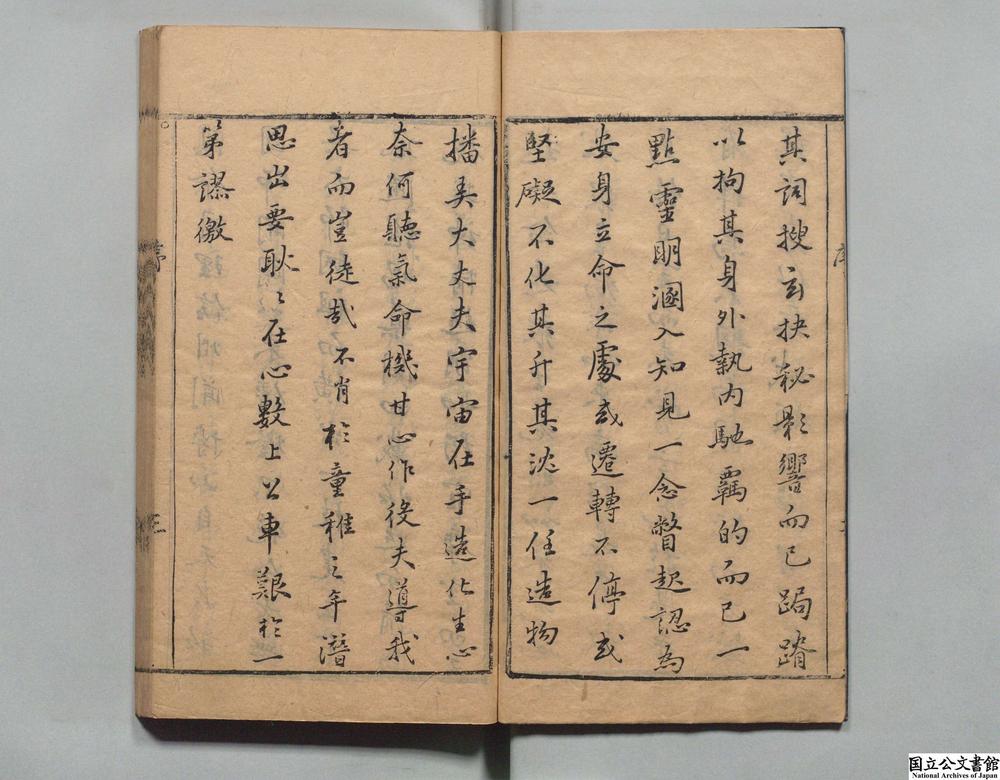 其詞搜玄抉秘影響而已跼蹐
以拘其身外執內馳羈的而已一
點靈明溷入知見一念瞥起認為
安身立命之處或遷轉不停或
堅礙不化其升其沈一任造物
播弄大丈夫宇宙在手造化生心
奈何聽氣命機甘心作役夫導我
者而豈徒哉不肖於童稚之年潛
思出要耿〻在心數上公車艱於一
第謬徼
序
三
国立公文書館
National Archives of Japan